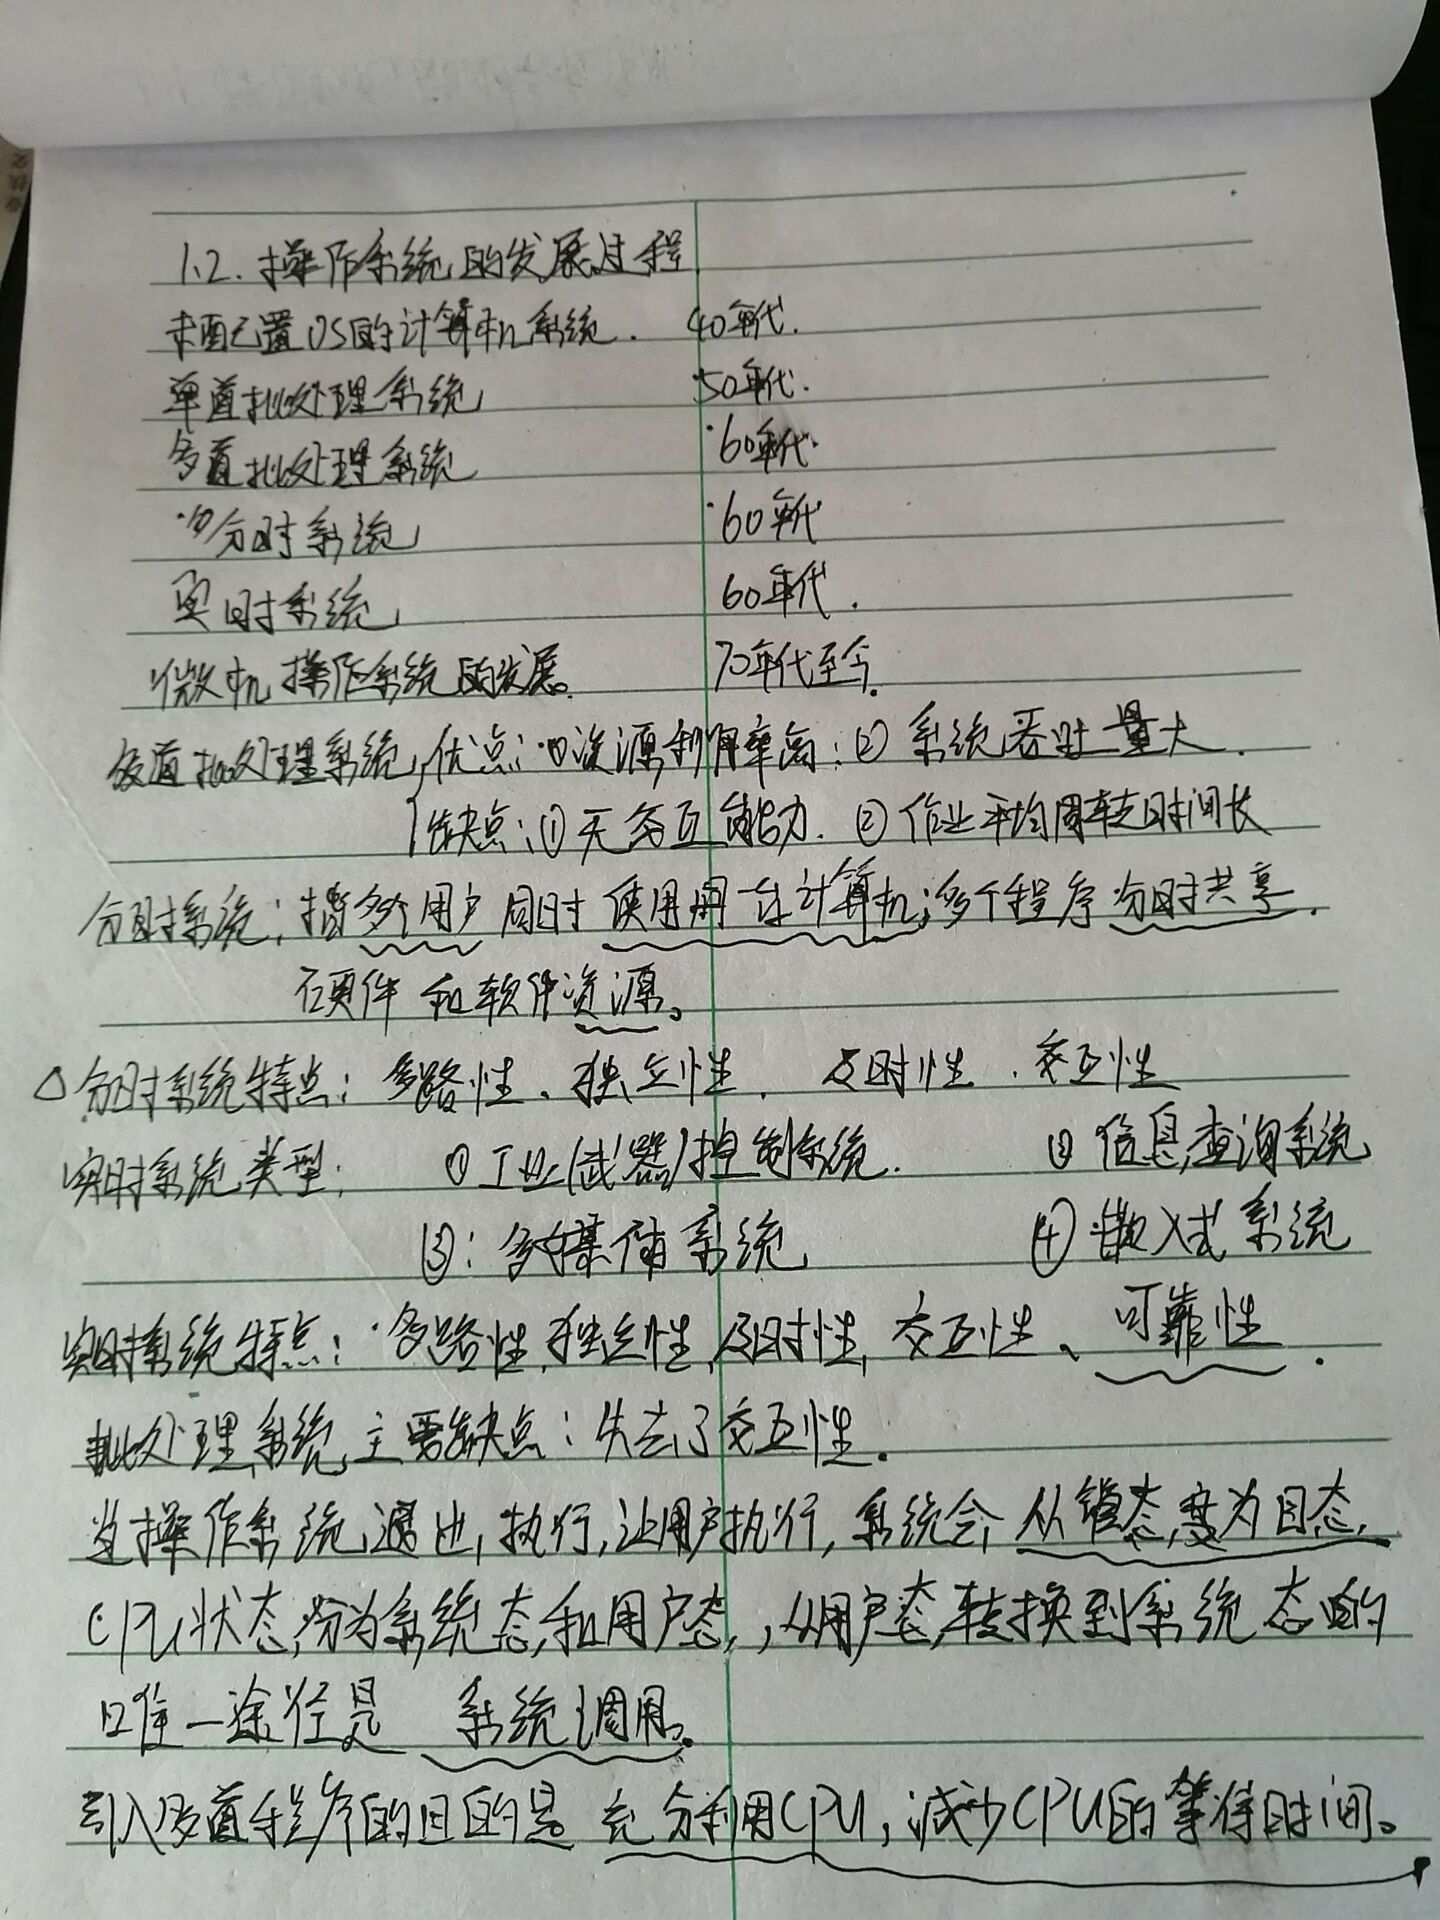 1.2. 操作系统的发展过程
未配置OS的计算机系统. 40年代.
单道批处理系统 50年代.
多道批处理系统 60年代.
分时系统 60年代
实时系统 60年代.
微机操作系统的发展. 70年代至今.
多道批处理系统, 优点: ①资源利用率高: ② 系统吞吐量大.
缺点: ① 无交互能力. ② 作业平均周转时间长
分时系统: 指多个用户同时使用用一台计算机; 多个程序分时共享.
硬件和软件资源。
△分时系统特点: 多路性、独立性、及时性、交互性
实时系统类型: ① 工业(武器)控制系统. ② 信息查询系统
③: 多媒体系统 ④ 嵌入式系统
实时系统特点: 多路性, 独立性, 及时性, 交互性、可靠性.
批处理系统主要缺点: 失去了交互性.
当操作系统退出, 执行, 让用户执行, 系统会从管态, 变为目态,
CPU状态, 分为系统态, 和用户态, , 从用户态, 转换到系统态的
唯一途径是 系统调用。
引入多道程序的目的是 充分利用CPU, 减少CPU的等待时间。